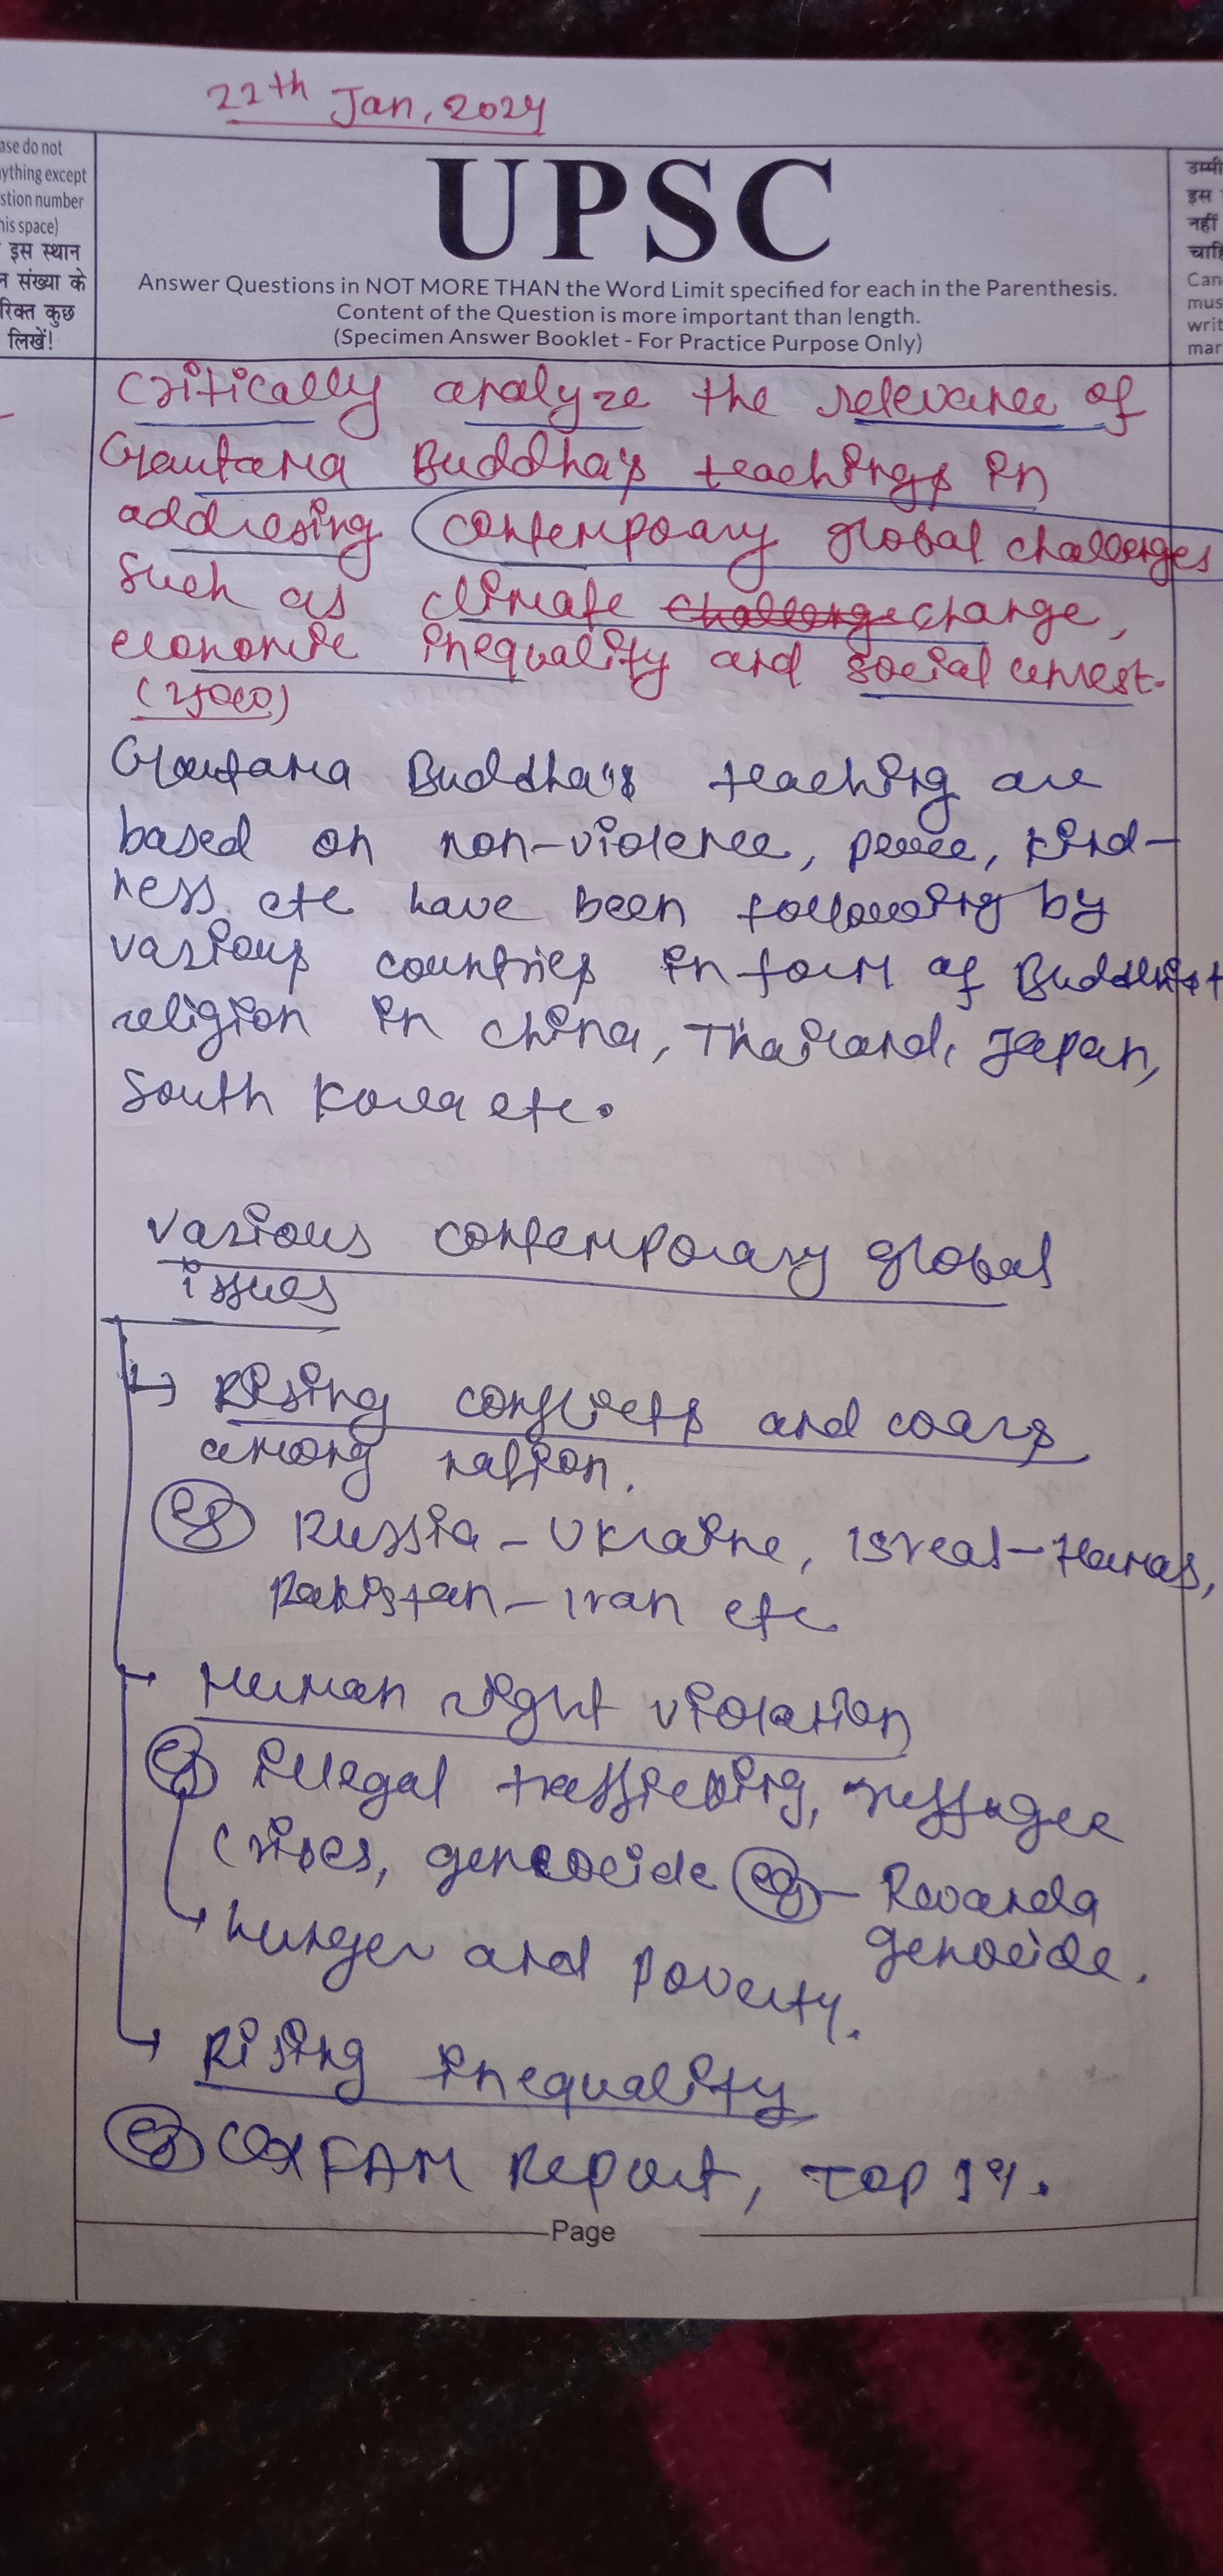 22th Jan, 2024
ase do not
ything except
stion number
his space)
इस स्थान
न संख्या के
रिक्त कुछ
लिखें!
UPSC
Answer Questions in NOT MORE THAN the Word Limit specified for each in the Parenthesis.
Content of the Question is more important than length.
(Specimen Answer Booklet - For Practice Purpose Only)
उम्मी
इस
नहीं
चाहि
Can
mus
writ
mar
Critically analyze the relevance of
Gautama Buddha's teachings in
addresing contempoary global challenges
such as climate challenge change,
economic inequality and social unrest.
Gautama Buddha's teaching are
based on non-violence, peace, kind-
ness etc have been following by
various countries in form of Buddhist
religion in China, Thailand, Japan,
South Korea etc.
Various contemporary global
issues
Rising conflicts and wars
among nation.
eg Russia - Ukraine, Isreal - Hamas,
Pakistan - Iran etc
Human right violation
eg illegal trafficking, reffugee
crises, genocide eg - Rwanda
genocide.
hunger and poverty.
Rising inequality
eg OXFAM Report, Top 1%.
Page